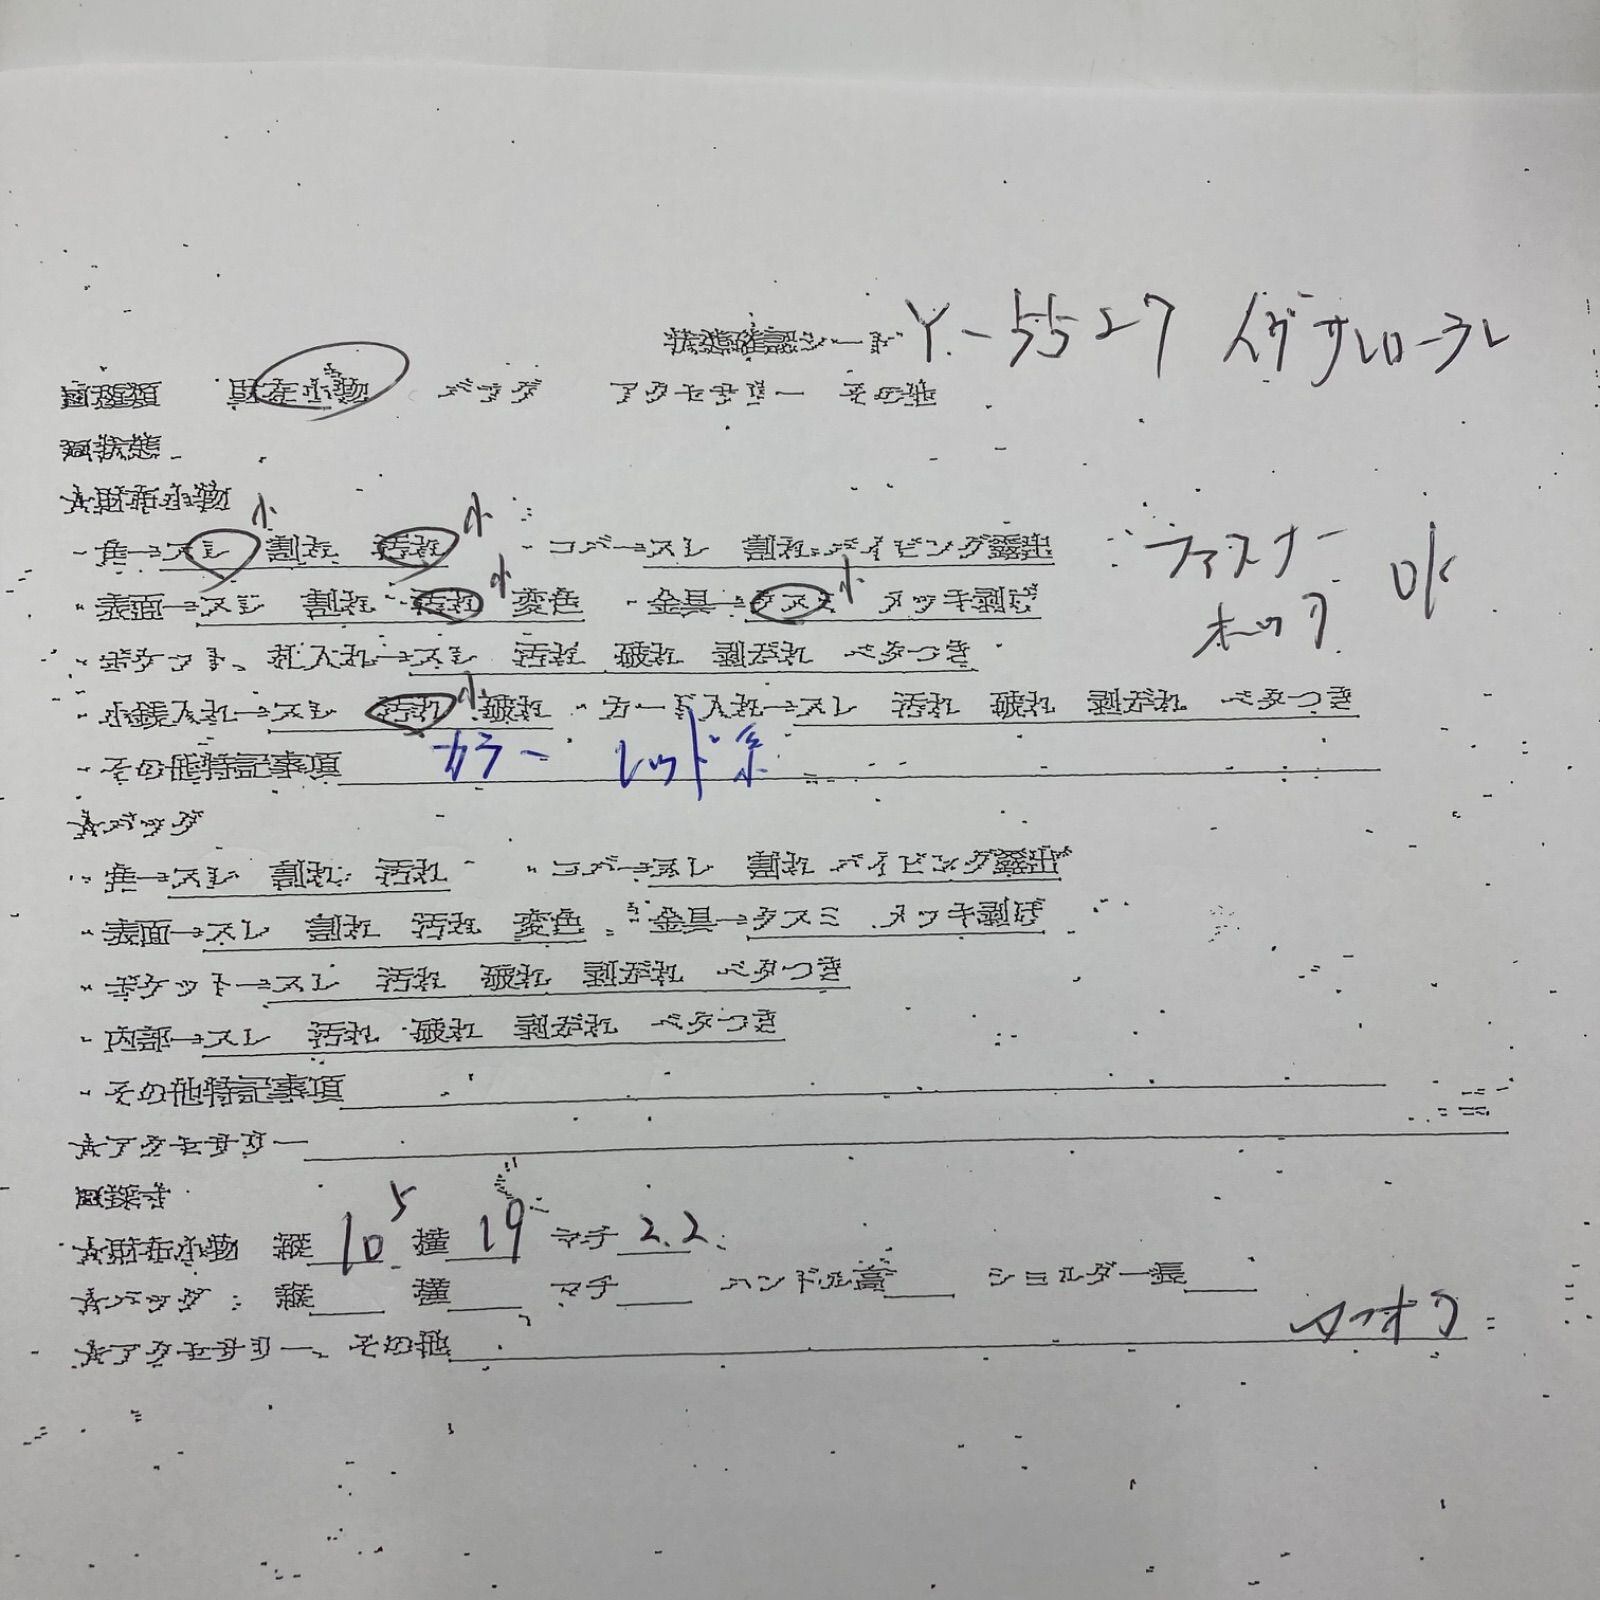 状態確認シート Y-5527 イヴサンローラン
□種類 財布小物 バッグ アクセサリー その他
□状態
★財布小物
小 小
・角→スレ 割れ 汚れ ・コバ→スレ 割れ パイピング露出 ファスナー OK
小 小
・表面→スレ 割れ 汚れ 変色 ・金具→クスミ メッキ剥げ ホック
・ポケット、札入れ→スレ 汚れ 破れ 剥がれ ベタつき
小
・小銭入れ→スレ 汚れ 破れ ・カード入れ→スレ 汚れ 破れ 剥がれ ベタつき
・その他特記事項 カラー レッド系
★バッグ
・角→スレ 割れ 汚れ ・コバ→スレ 割れ パイピング露出
・表面→スレ 割れ 汚れ 変色 ・金具→クスミ メッキ剥げ
・ポケット→スレ 汚れ 破れ 剥がれ ベタつき
・内部→スレ 汚れ 破れ 剥がれ ベタつき
・その他特記事項
★アクセサリー
□採寸
★財布小物 縦 10.5 横 19 マチ 2.2
★バッグ 縦 横 マチ ハンドル高 ショルダー長
★アクセサリー、その他 ヤフオク